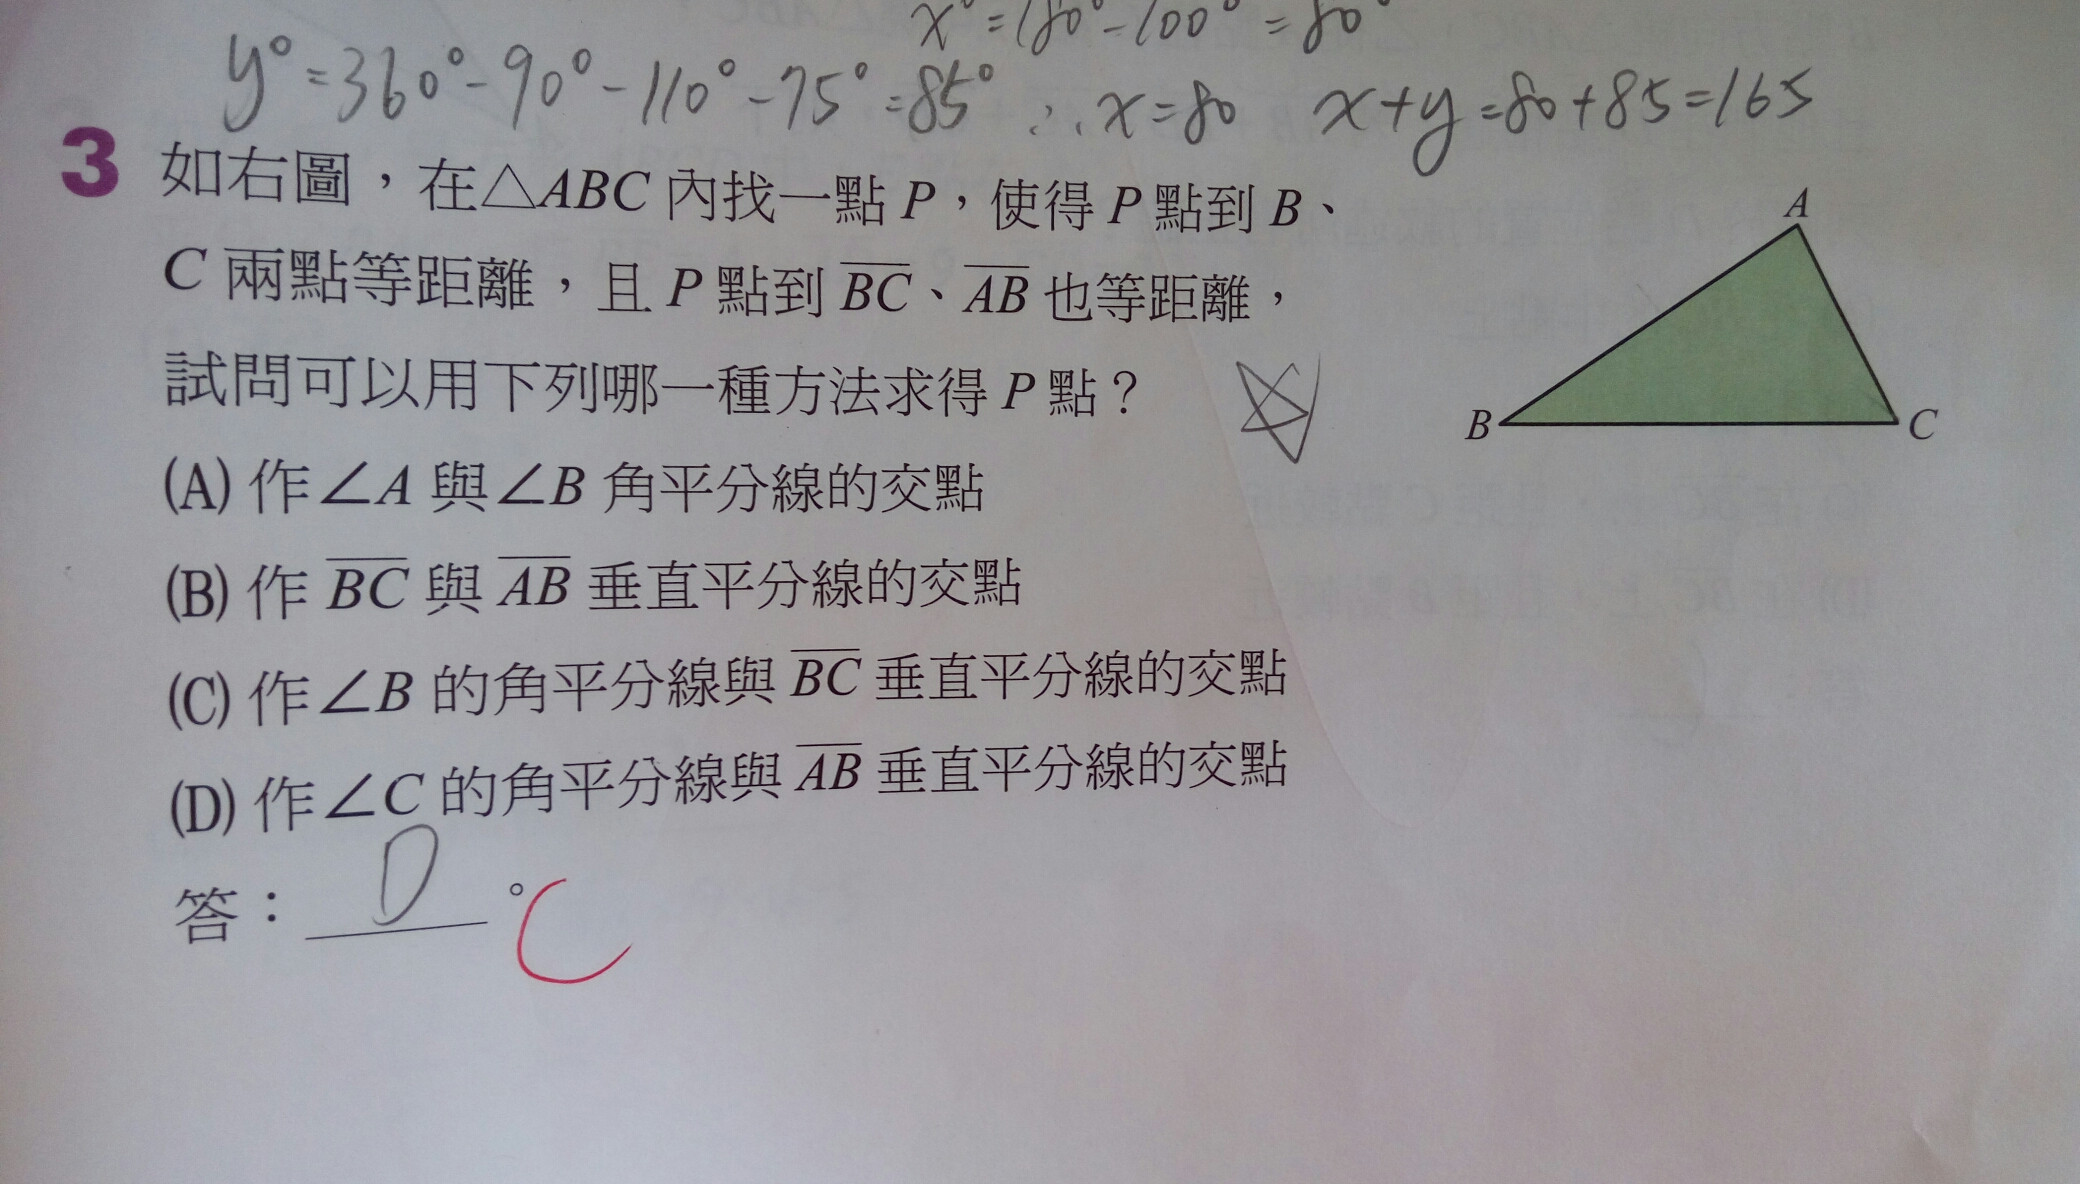 x°=180°-100°=80°
y°=360°-90°-110°-75°=85° ∴x=80 x+y=80+85=165
3 如右圖，在△ABC 內找一點 P，使得 P 點到 B、
C 兩點等距離，且 P 點到 B̅C̅、A̅B̅ 也等距離，
試問可以用下列哪一種方法求得 P 點？
(A) 作∠A 與∠B 角平分線的交點
(B) 作 B̅C̅ 與 A̅B̅ 垂直平分線的交點
(C) 作∠B 的角平分線與 B̅C̅ 垂直平分線的交點
(D) 作∠C 的角平分線與 A̅B̅ 垂直平分線的交點
答：D。C
A
B
C